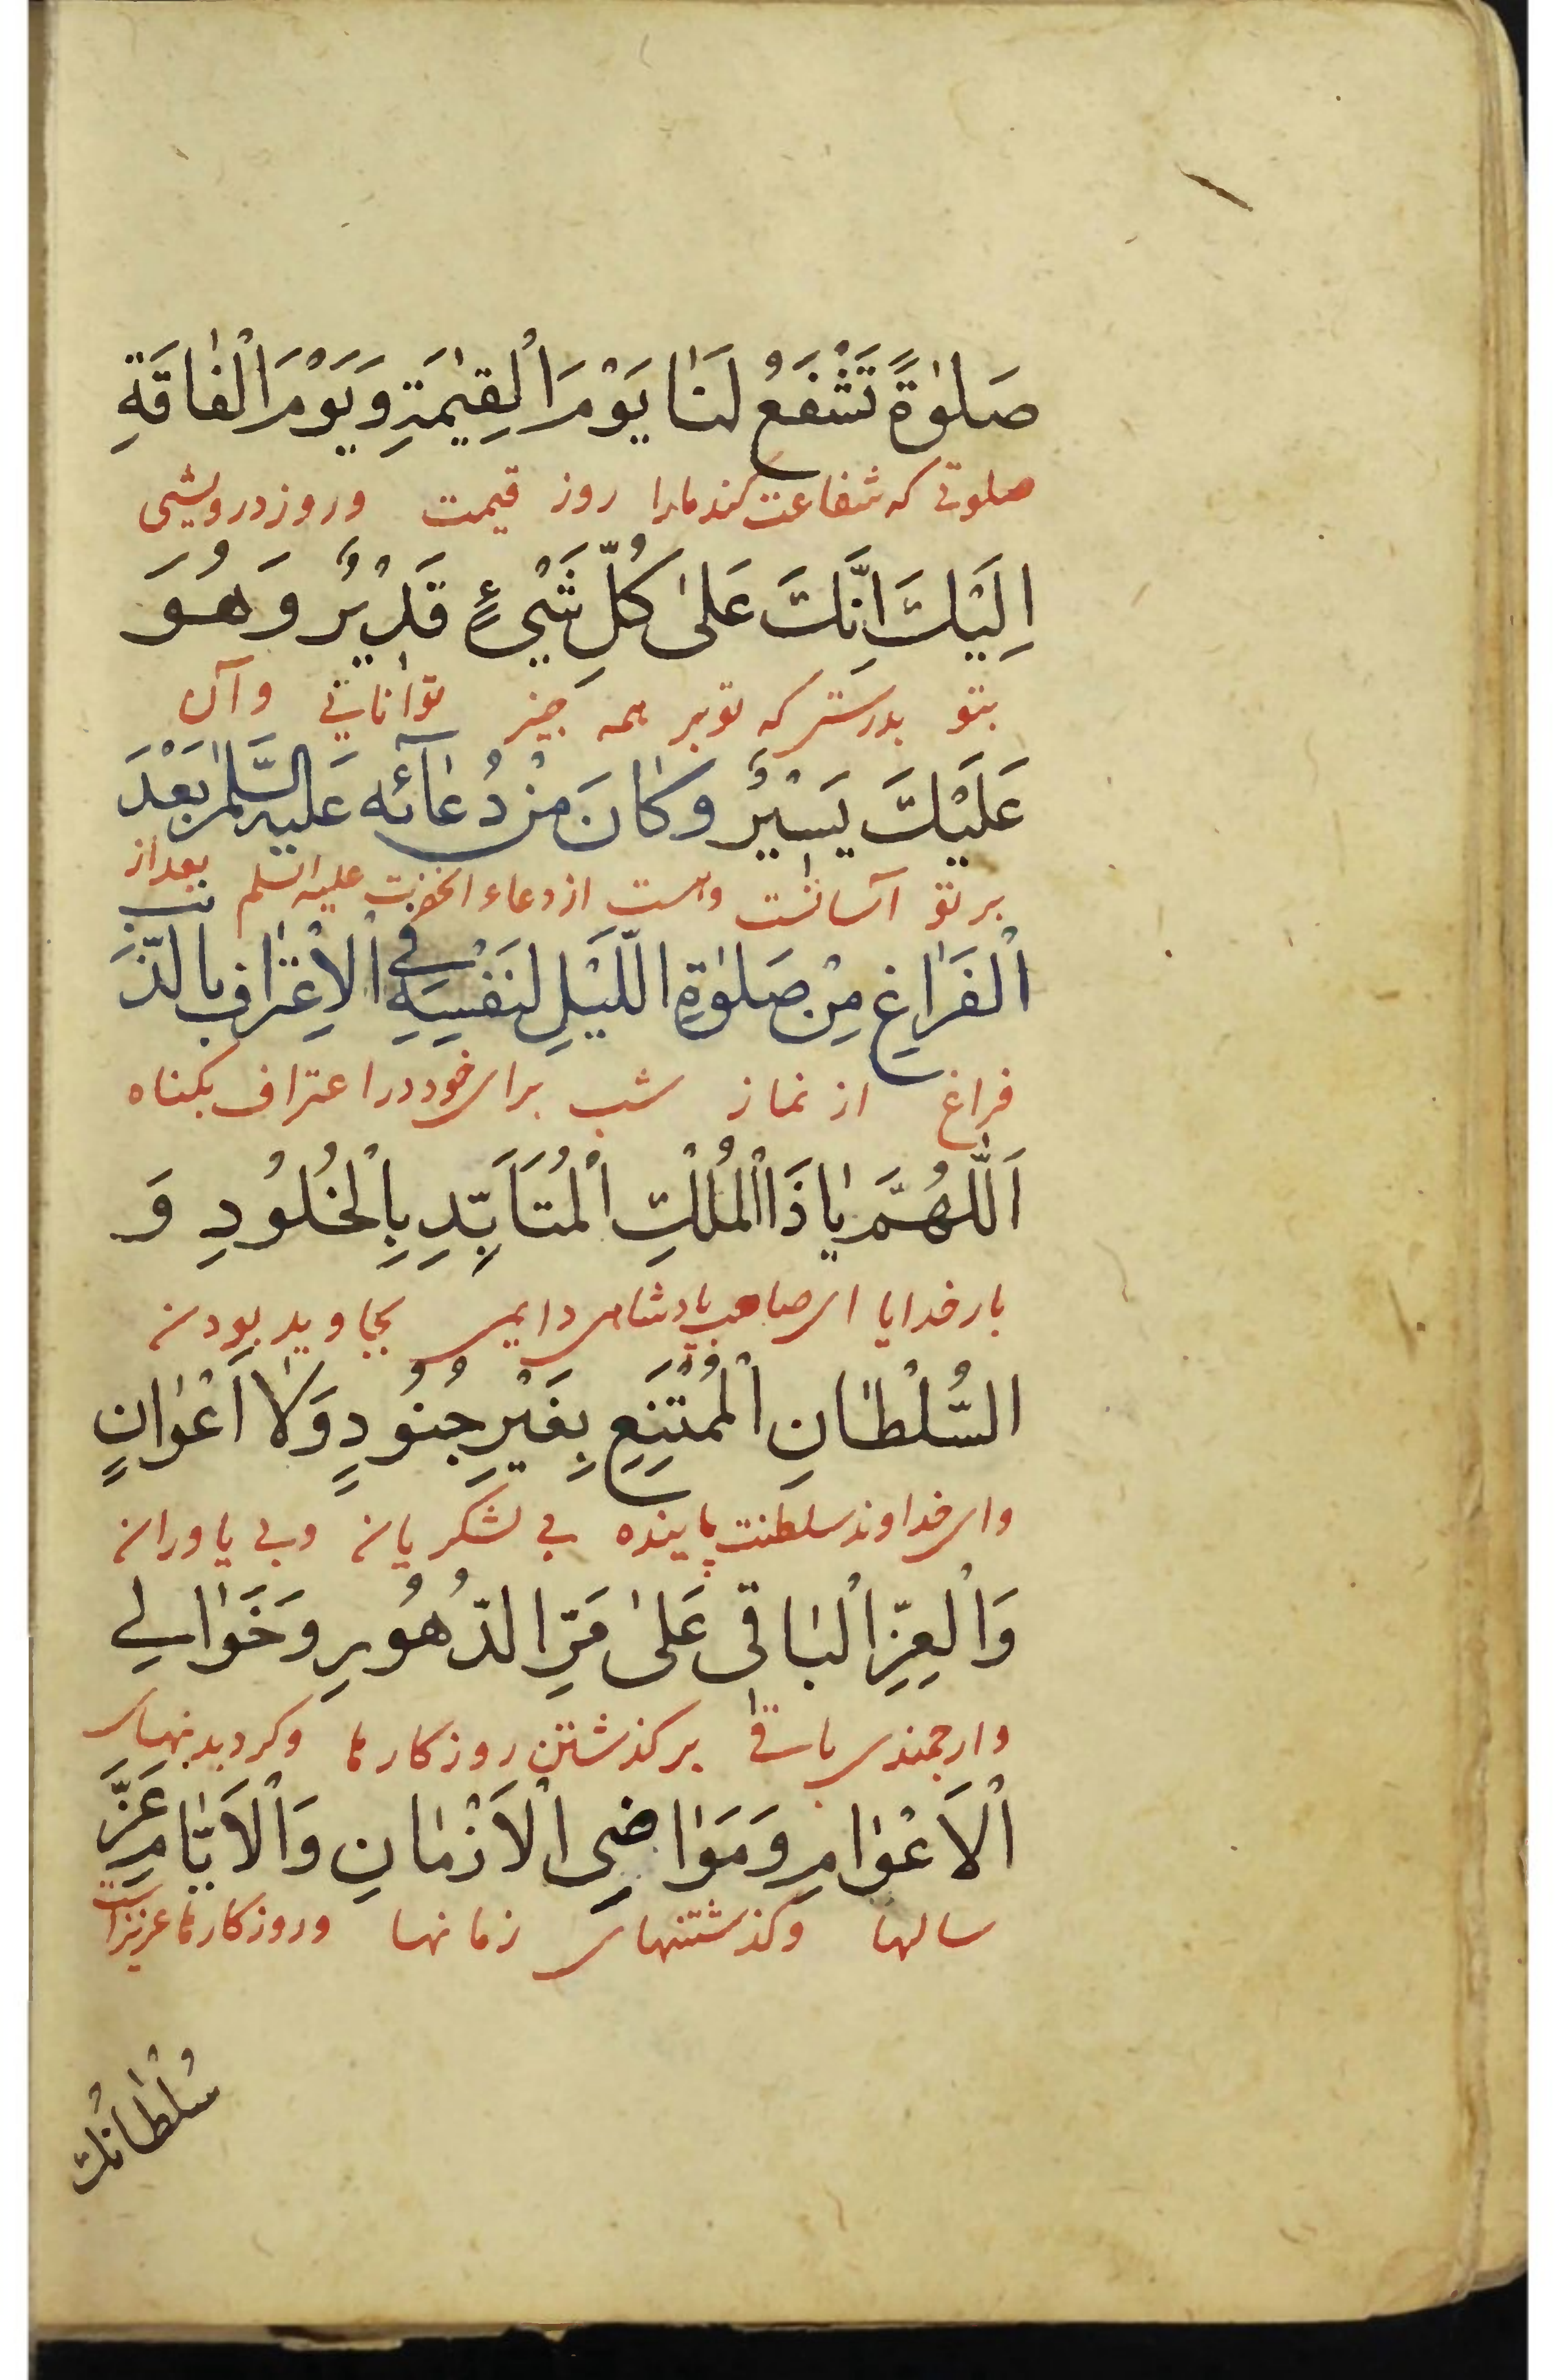 صَلٰوةً تَشْفَعُ لَنٰا يَوْمَ الْقِيٰمَةِ وَيَوْمَ الْفٰاقَةِ
صلوتی که شفاعت کند مارا روز قیمت وروز درویشی
اِلَيْكَ اِنَّكَ عَلىٰ كُلِّ شَيْءٍ قَدٖيْرٌ وَهُوَ
بتو بدرستی که تو بر همه چیز توانایی وآن
عَلَيْكَ يَسٖيْرٌ وَكٰانَ مِنْ دُعٰآئِه عَلَيْهِ السَّلٰمُ بَعْدَ
بر تو آسانست وهست از دعاء انحضرت علیه السلم بعد از
الْفَرٰاغِ مِنْ صَلٰوةِ اللَّيْلِ لِنَفْسِهِ فِي الْاِعْتِرٰافِ بِالذَّنْبِ
فراغ از نماز شب برای خود در اعتراف بکناه
اَللّٰهُمَّ يٰا ذَا الْمُلْكِ الْمُتَاَبِّدِ بِالْخُلُودِ وَ
بار خدایا ای صاحب پادشاهی دایمی بجاوید بودن
السُّلْطٰانِ الْمُمْتَنِعِ بِغَيْرِ جُنُودٍ وَلٰا اَعْوٰانٍ
وای خداوند سلطنت پاینده بی لشکریان وبی یاوران
وَالْعِزِّ الْبٰاقٖى عَلىٰ مَرِّ الدُّهُورِ وَخَوٰالِي
وارجمندی باقی بر کذشتن روزکارها وکردیدنهای
الْاَعْوٰامِ وَمَوٰاضِى الْاَزْمٰانِ وَالْاَيّٰامِ عَزَّ
سالها وکذشتنهای زمانها وروزکارها عزیز است
سُلْطٰانُكَ